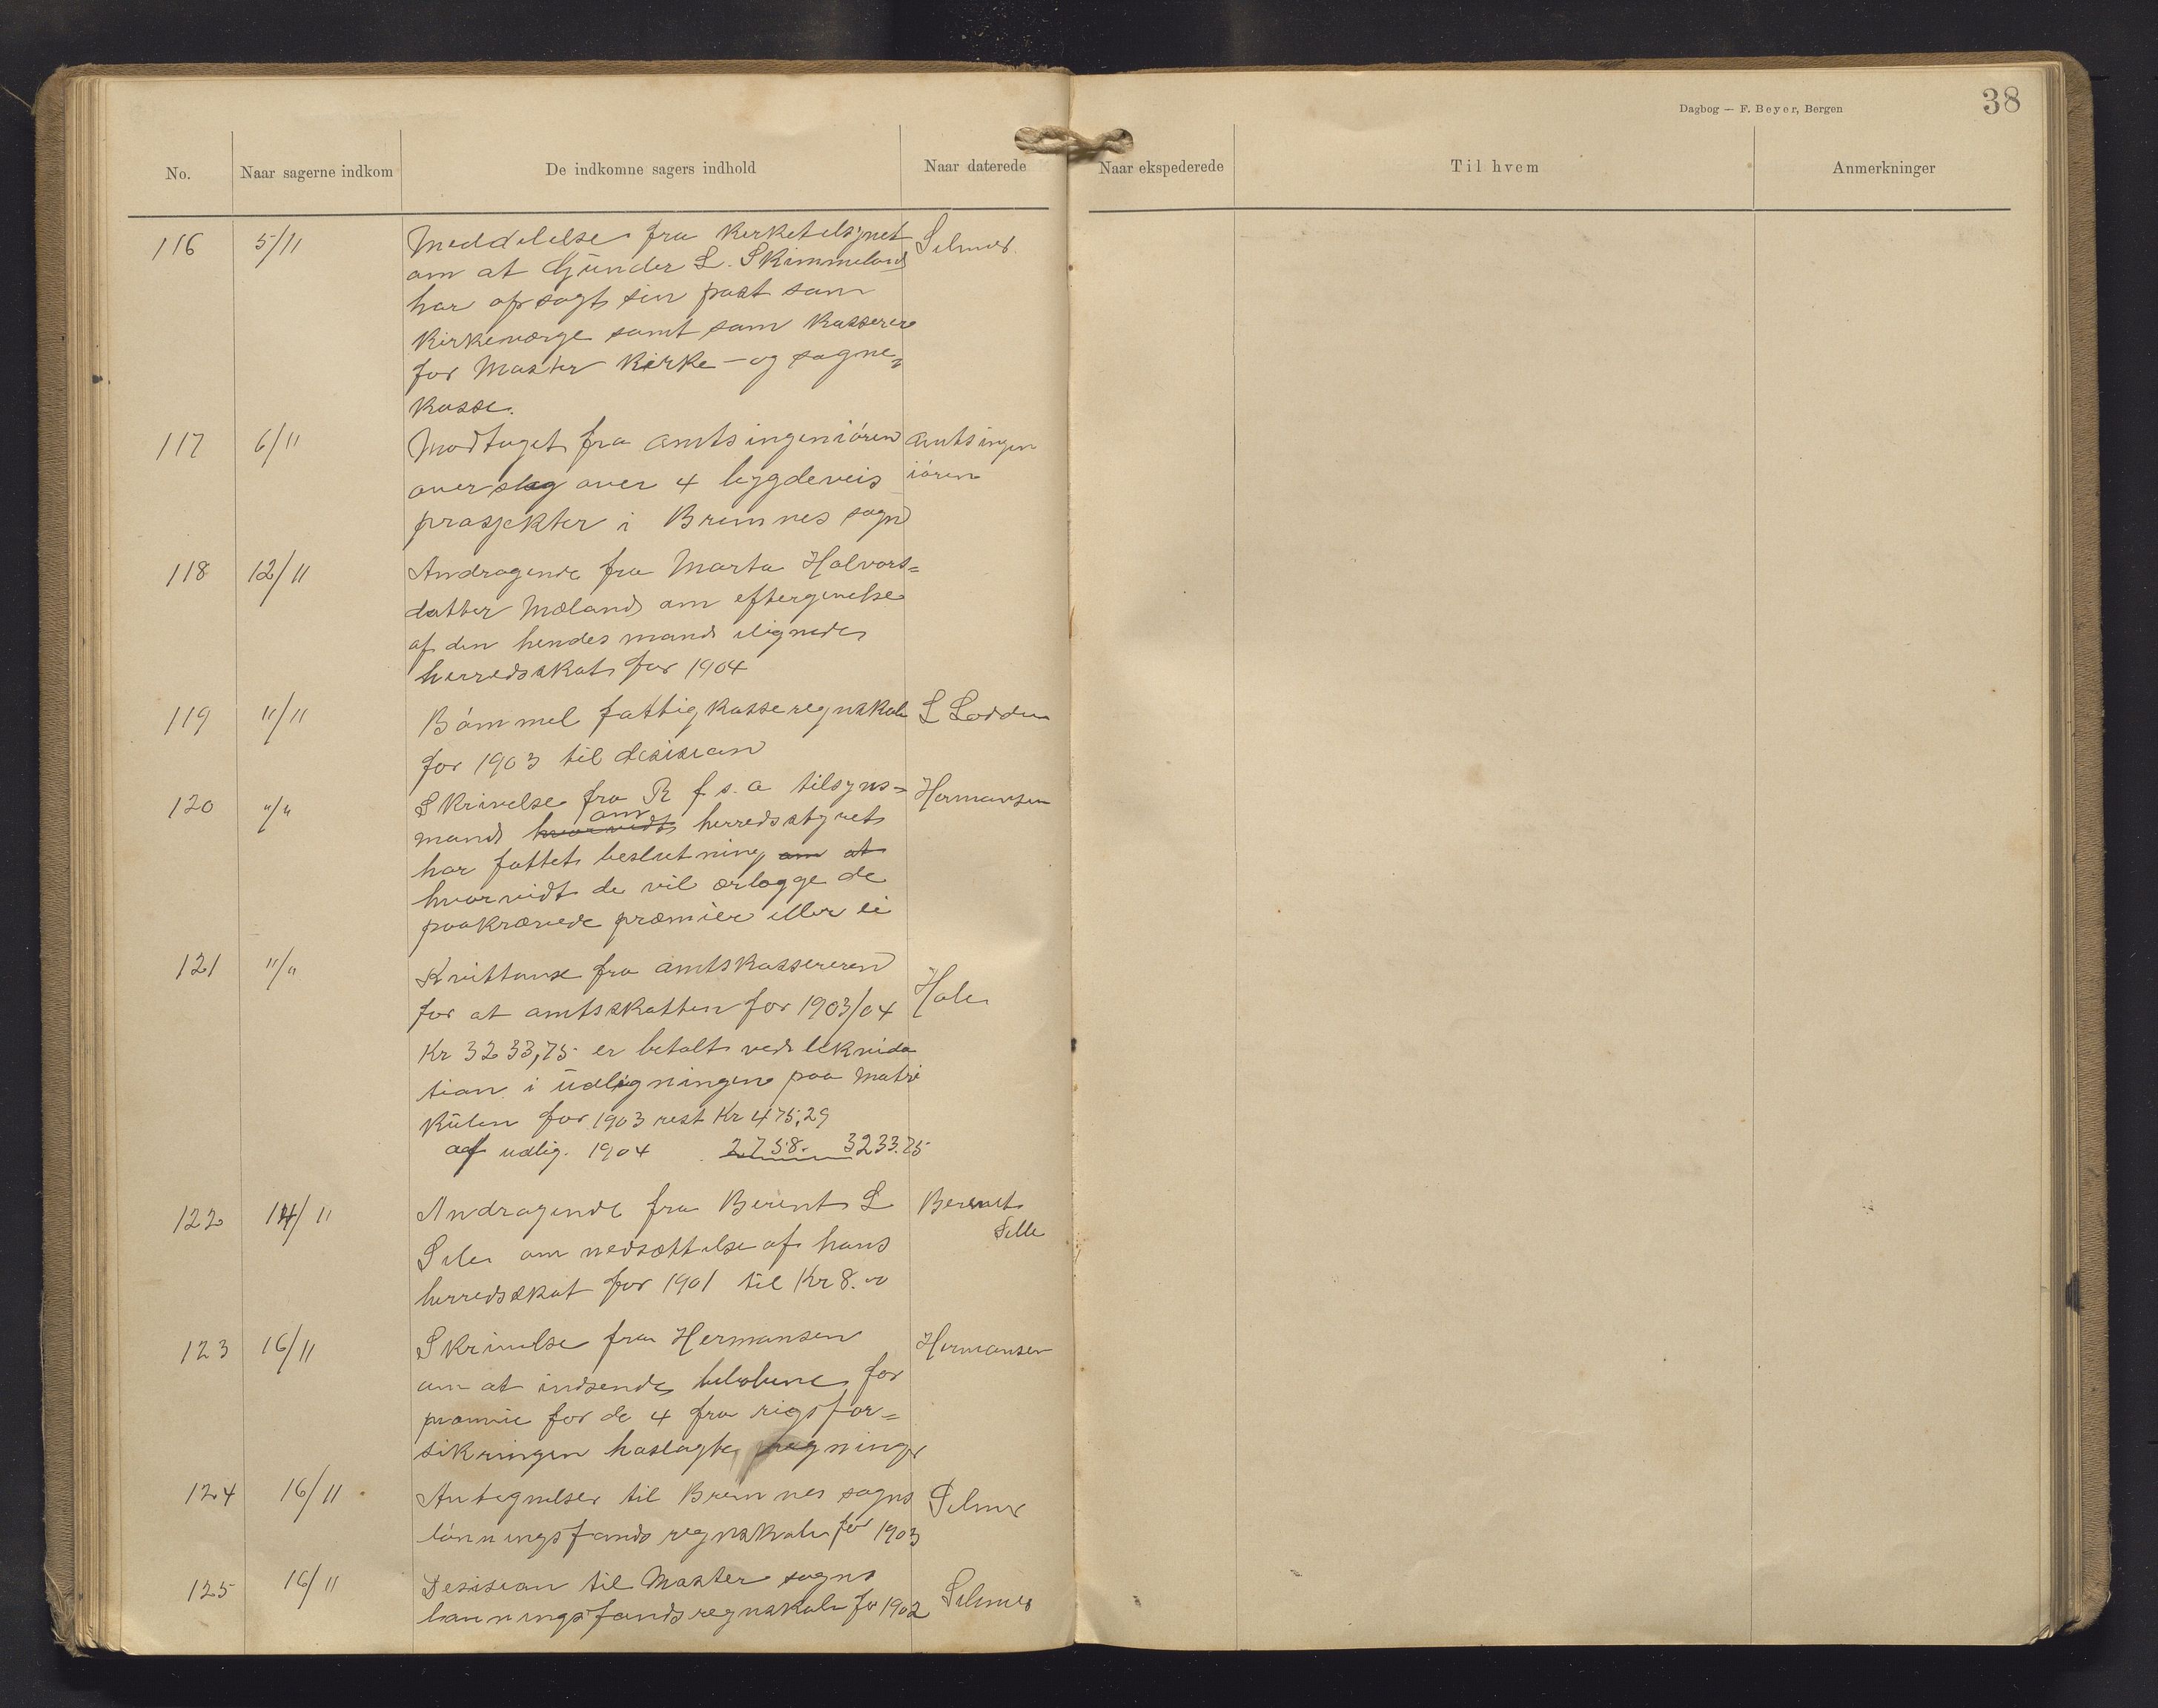 Dagbog — F. Beyer, Bergen
38
No. Naar sagerne indkom De indkomne sagers indhold Naar daterede Naar ekspederede Til hvem Anmerkninger
116 5/11 Meddelelse fra kerketilsynet Selmer
om at Günder L. Skimmeland
har opsagt sin post som
Kirkeværge samt som kasserer
for Moster Kirke- og sogne„
kasse.
117 6/11 Modtaget fra amtsingeniören amtsingen
overslag over 4 bygdeveis iören
prosjekter i Bremnes sogn
118 12/11 Andragende fra Marta Halvors=
datter Mæland om eftergivelse
af den hendes mand ilignede
herredsskat for 1904
119 "/11 Bömmel fattigkasseregnskab L Lodden
for 1903 til desision
120 "/" Skrivelse fra R f. s. a tilsyns= Hermansen
mand hvorvidt om herredsstyret
har fattet beslutning om at
hvorvidt de vil erlægge de
paakrævede præmier eller ei
121 "/" Kvittanse fra amtskassereren
for at amtsskatten for 1903/04 Hole
Kr 3233,75 er betalt ved likvida
tion i üdligningen paa matri
külen for 1903 rest Kr 475,29
af udlig. 1904 2758. 3233.75
122 14/11 Andragende fra Berent L Berent
Sele om nedsættelse af hans Selle
herredsskat for 1901 til Kr 8.00
123 16/11 Skrivelse fra Hermansen Hermansen
om at indsende belobene for
præmie for de 4 fra rigsfor=
sikringen
124 16/11 Antegnelser til Bremnes sogns Selmer
lönningsfonds regnskab for 1903
125 16/11 Desision til Moster sogns
lønningsfondsregnskab for 1902 Selmer